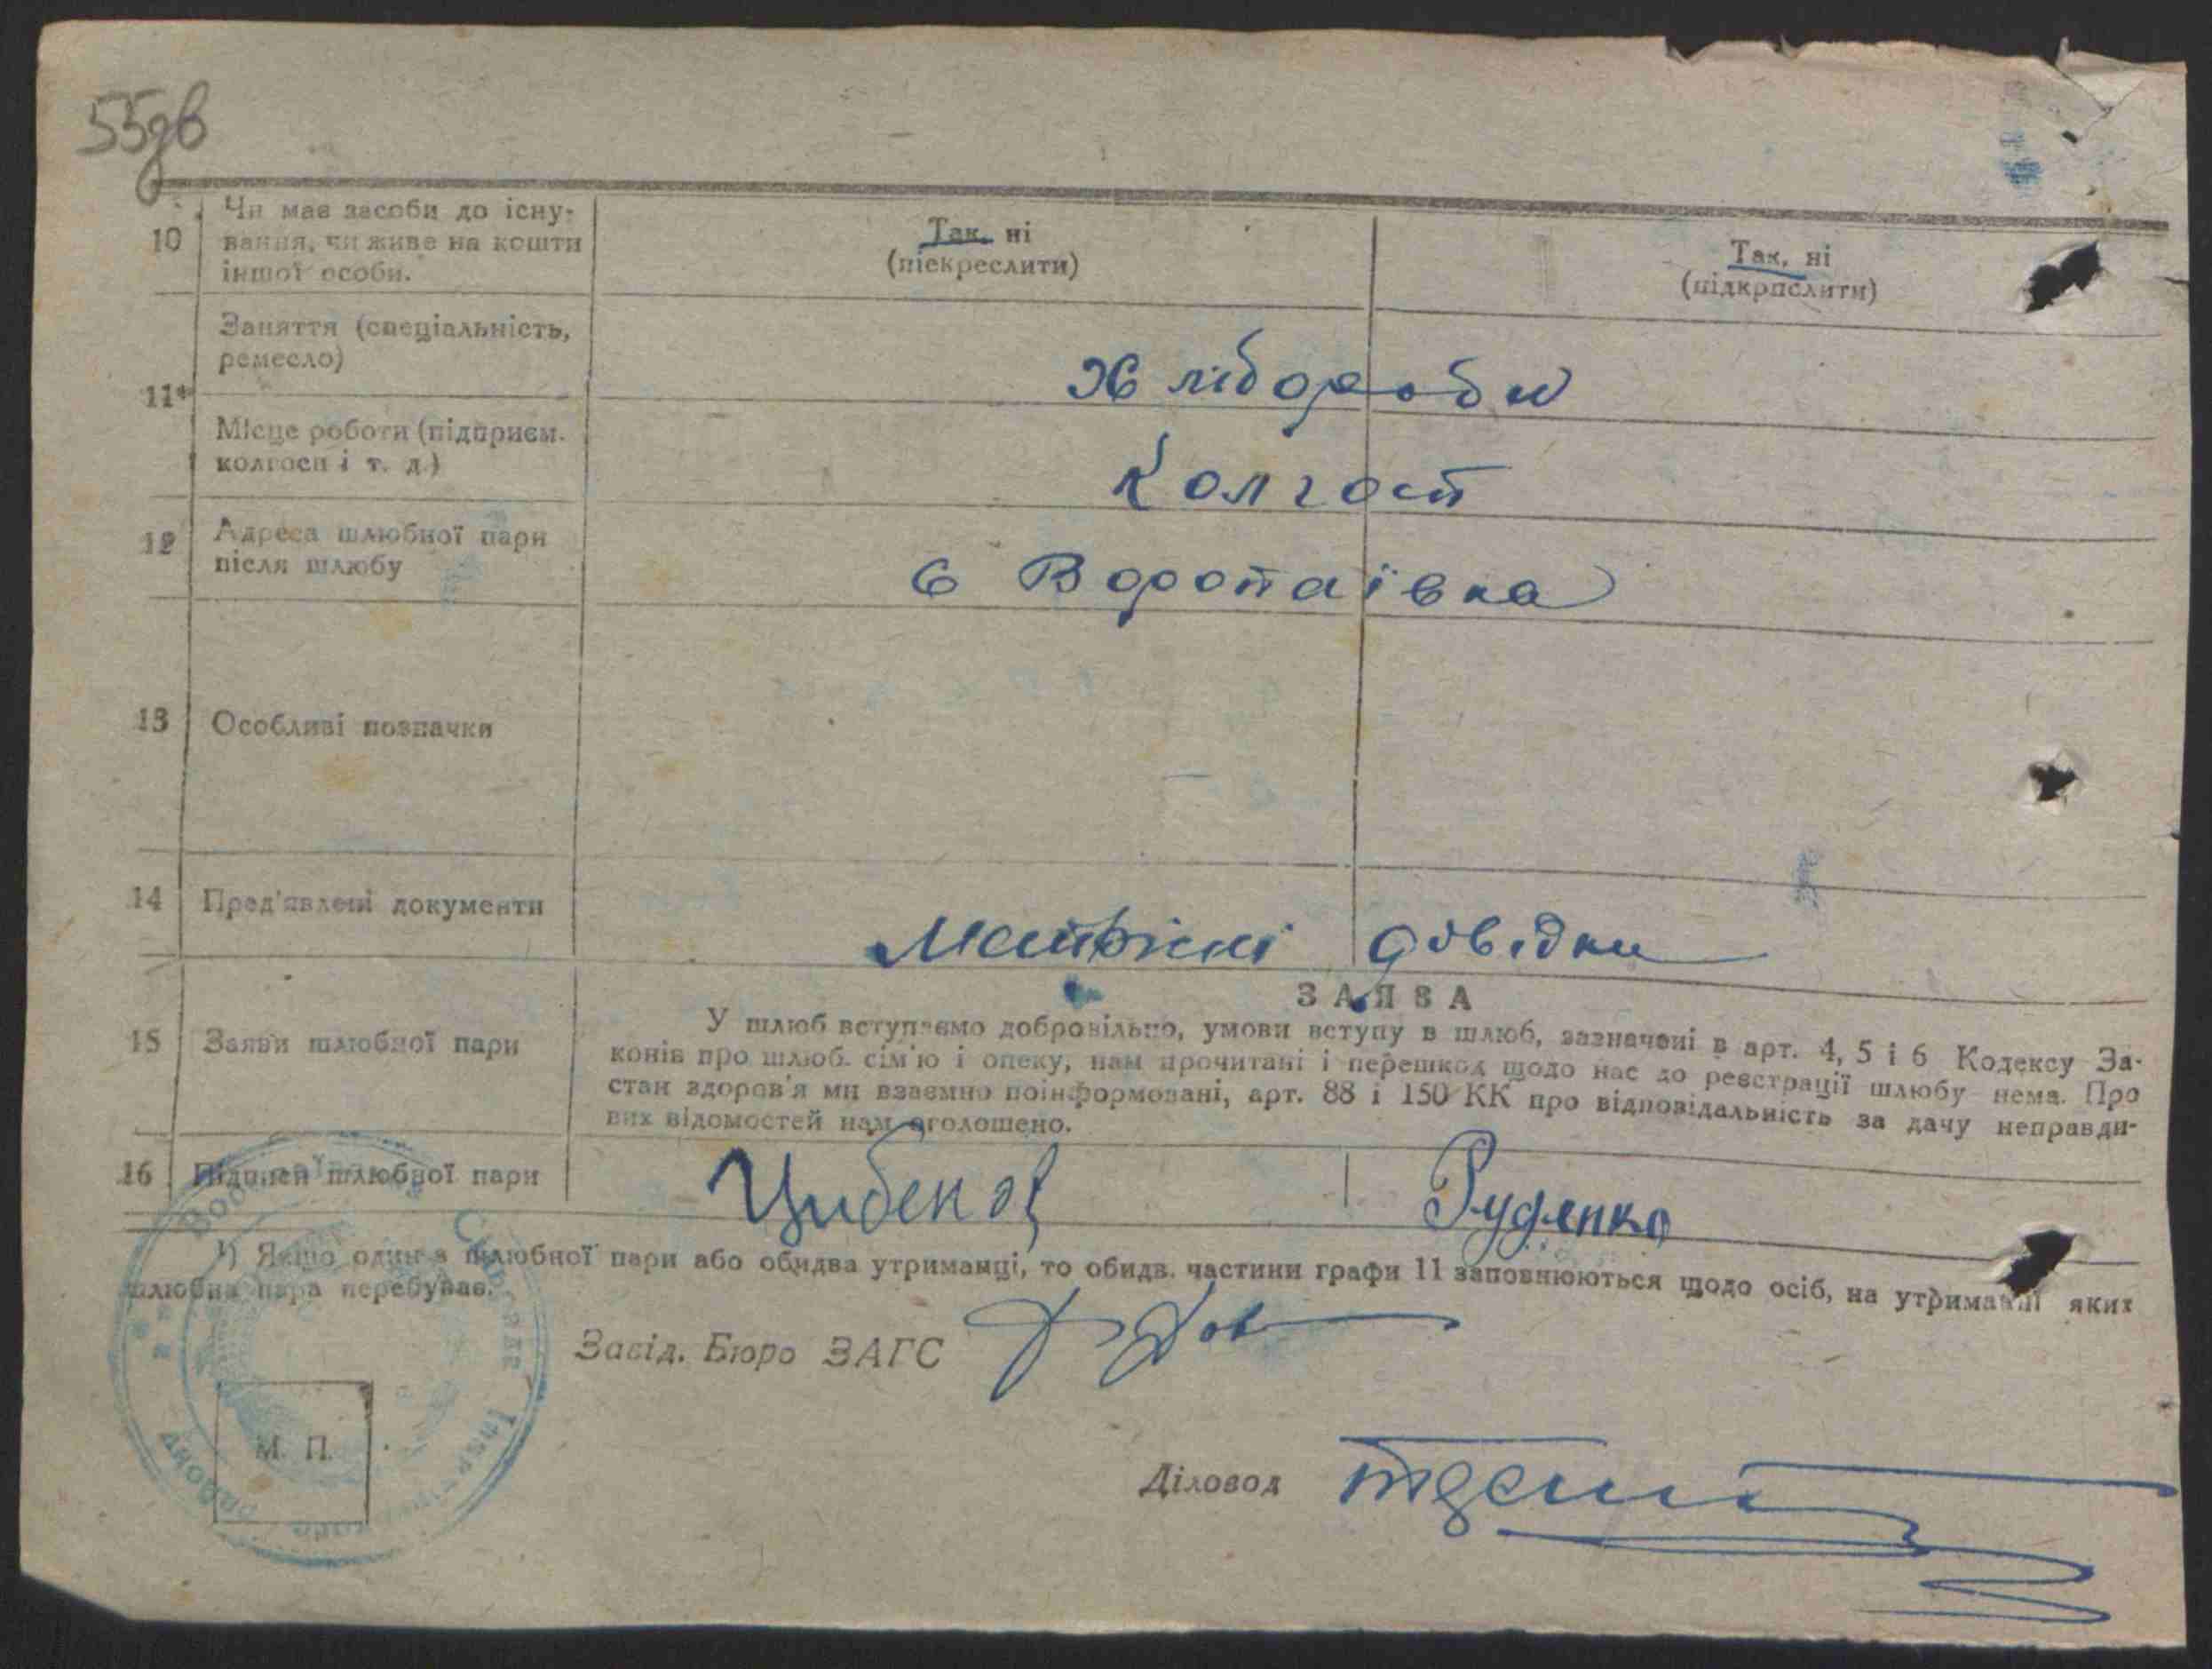 55зв
10 Чи має засоби до існу-
вання, чи живе на кошти
іншої особи.
Так, ні
(піекреслити)
Так, ні
(підкрпслити)
11* Заняття (спеціальність,
ремесло)
Хлібороби
Місце роботи (підприєм.
колгосп і т. д.)
Колгосп
12 Адреса шлюбної пари
після шлюбу
С Воропаївка
13 Особливі позначки
14 Пред'явлені документи
Метричні довідки
15 Заяви шлюбної пари
ЗАЯВА
У шлюб вступаємо добровільно, умови вступу в шлюб, зазначені в арт. 4, 5 і 6 Кодексу За-
конів про шлюб. сім'ю і опеку, нам прочитані і перешкод щодо нас до реєстрації шлюбу нема. Про
стан здоров'я ми взаємно поінформовані, арт. 88 і 150 КК про відповідальність за дачу неправди-
вих відомостей нам оголошено.
16 Підписи шлюбної пари
Цибенов
Руденко
¹) Якщо один з шлюбної пари або обидва утриманці, то обидв. частини графи 11 заповнюються щодо осіб, на утриманні яких
шлюбна пара перебуває.
Завід. Бюро ЗАГС
Діловод
М. П.
району